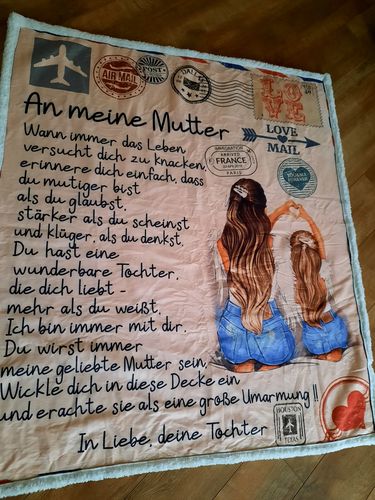 AIR MAIL
POST
DALLAS
LOVE
An meine Mutter
LOVE
MAIL
Wann immer das Leben
versucht dich zu knacken,
erinnere dich einfach, dass
du mutiger bist
als du glaubst,
stärker als du scheinst
und klüger, als du denkst.
IMMIGRATION
ARRIVED
FRANCE
PARIS
Du hast eine
wunderbare Tochter,
die dich liebt -
mehr als du weißt.
Ich bin immer mit dir.
Du wirst immer
meine geliebte Mutter sein.
Wickle dich in diese Decke ein
und erachte sie als eine große Umarmung !!
In Liebe, deine Tochter
HOUSTON
TEXAS